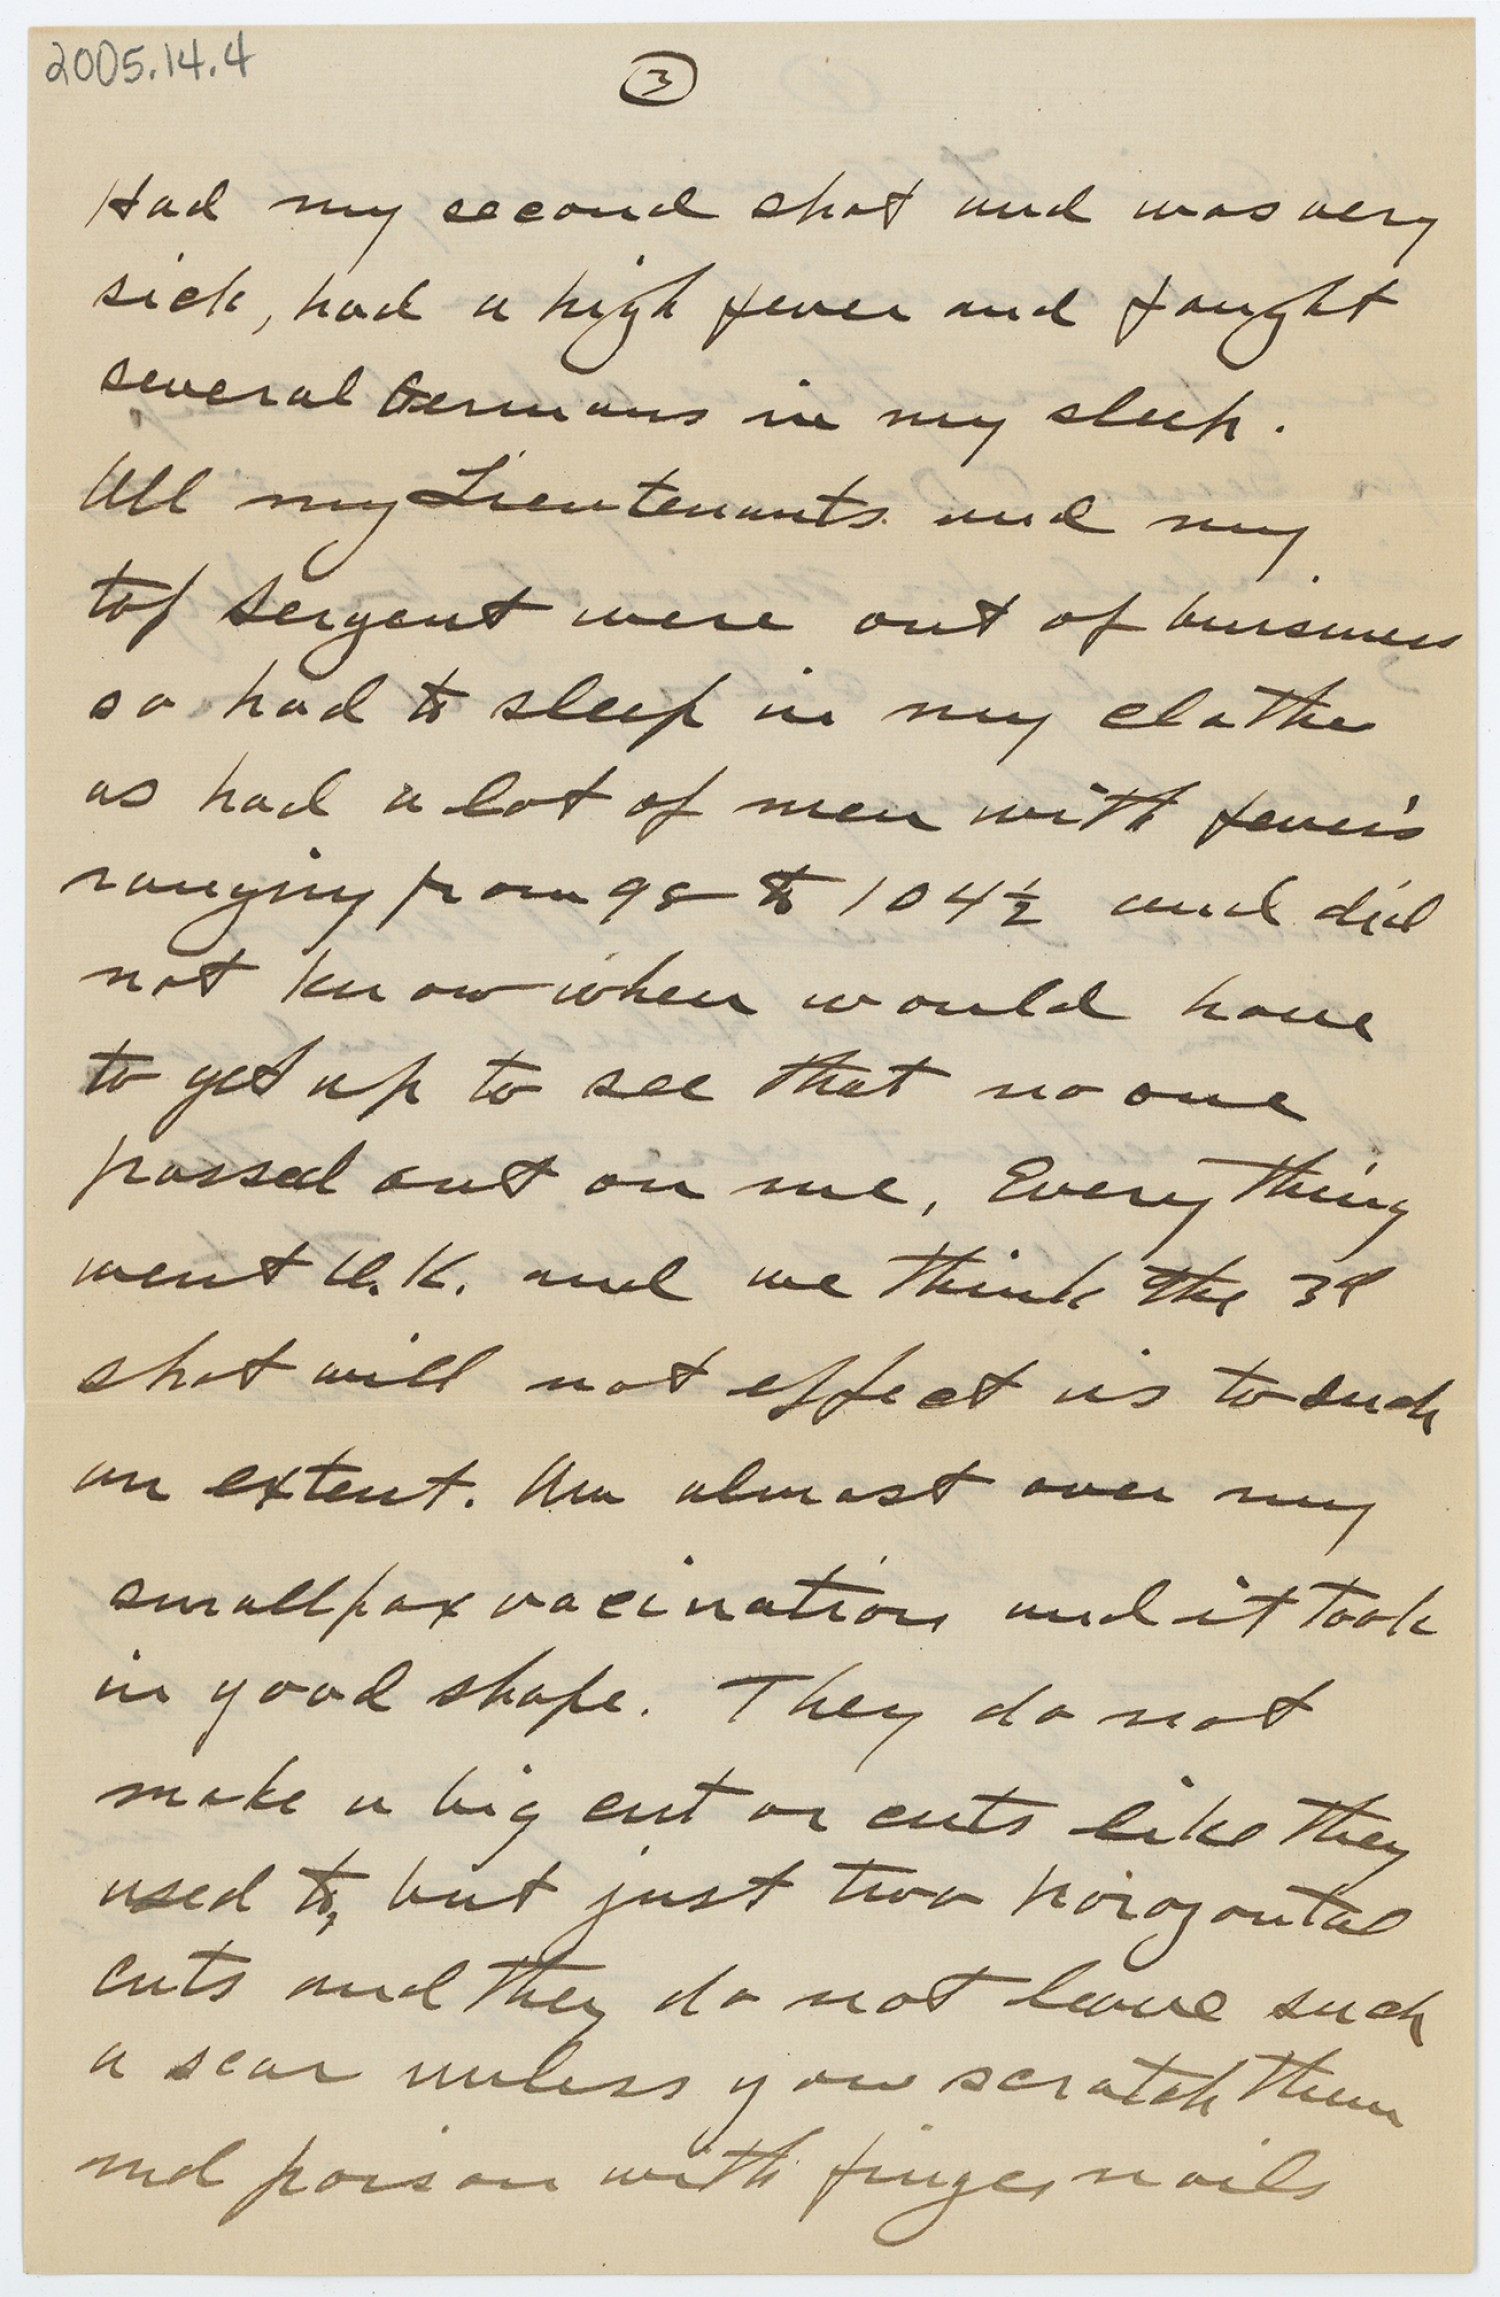 2005.14.4
3
Had my second shot and was very
sick, had a high fever and fought
several Germans in my sleep.
All my Lieutenants and my
top Sergent were out of buisness
so had to sleep in my clothes
as had a lot of men with fever's
ranging from 98 to 104½ and did
not know when would have
to get up to see that no one
passed out on me, Everything
went O.K. and we think the 3d
shot will not effect us to such
an extent. Am almost over my
smallpox vacination and it took
in good shape. They do not
make a big cut or cuts like they
used to, but just two horozontal
cuts and they do not leave such
a scar unless you scratch them
and poison with finger nails